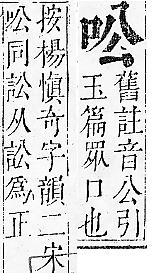 吆
舊註音公引
玉篇眾口也
按楊慎奇字韻二宋
吆同訟从訟為正